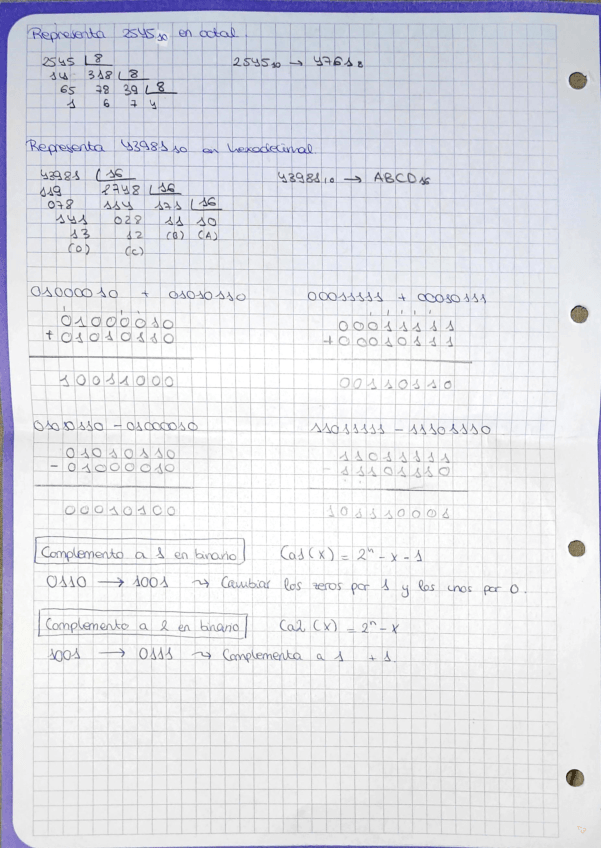 Representa 2545₁₀ en octal.
2545 | 8
14 318 | 8
65 78 39 | 8
1 6 7 4
2545₁₀ → 4761₈
Representa 43981₁₀ en hexadecimal.
43981 | 16
119 2748 | 16
078 114 171 | 16
141 028 11 10
13 12 (B) (A)
(D) (C)
43981₁₀ → ABCD₁₆
01000010 + 01010110
01000010
+ 01010110
10011000
00011111 + 00010111
00011111
+ 00010111
00110110
01010110 - 01000010
01010110
- 01000010
00010100
11011111 - 11101110
11011111
- 11101110
101110001
Complemento a 1 en binario
Ca1(x) = 2ⁿ - x - 1
0110 → 1001 ↝ Cambiar los zeros por 1 y los unos por 0.
Complemento a 2 en binario
Ca2(x) = 2ⁿ - x
1001 → 0111 ↝ Complementa a 1 + 1.